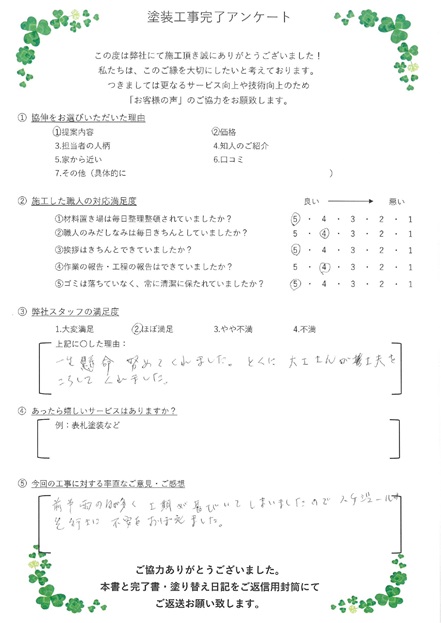 塗装工事完了アンケート
この度は弊社にて施工頂き誠にありがとうございました！
私たちは、このご縁を大切にしたいと考えております。
つきましては更なるサービス向上や技術向上のため
「お客様の声」のご協力をお願致します。
① 協伸をお選びいただいた理由
①提案内容 ②価格
3.担当者の人柄 4.知人のご紹介
5.家から近い 6.口コミ
7.その他（具体的に ）
② 施工した職人の対応満足度 良い 悪い
①材料置き場は毎日整理整頓されていましたか？ 5 ・ 4 ・ 3 ・ 2 ・ 1
②職人のみだしなみは毎日きちんとしていましたか？ 5 ・ 4 ・ 3 ・ 2 ・ 1
③挨拶はきちんとできていましたか？ 5 ・ 4 ・ 3 ・ 2 ・ 1
④作業の報告・工程の報告はできていましたか？ 5 ・ 4 ・ 3 ・ 2 ・ 1
⑤ゴミは落ちていなく、常に清潔に保たれていましたか？ 5 ・ 4 ・ 3 ・ 2 ・ 1
③ 弊社スタッフの満足度
1.大変満足 2.ほぼ満足 3.やや不満 4.不満
上記に○した理由：
一生懸命 努めてくれました。とくに 大工さんが 工夫を
こらして くれました。
④ あったら嬉しいサービスはありますか？
例：表札塗装など
⑤ 今回の工事に対する率直なご意見・ご感想
雨の 多く 工期が 長びいて しまいましたので スケジュール
先行きに 不安を おぼえました。
ご協力ありがとうございました。
本書と完了書・塗り替え日記をご返信用封筒にて
ご返送お願い致します。